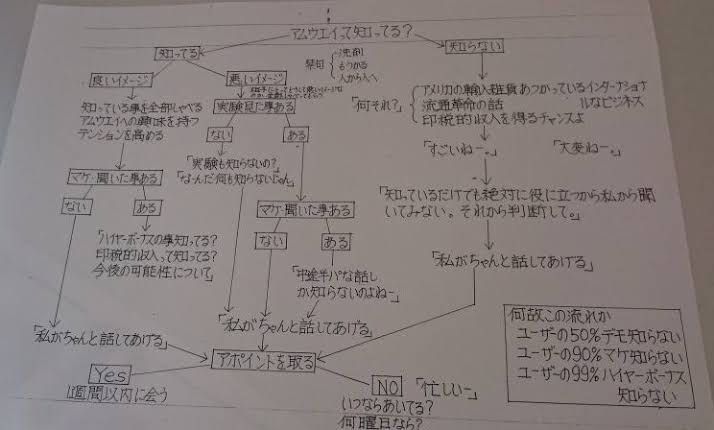 アムウエイって知ってる?
知ってる
知らない
禁句
洗剤
もうかる
人から人へ
良いイメージ
悪いイメージ
知っている事を全部しゃべる
アムウエイへの興味を持つ
テンションを高める
実験見た事ある
ない
ある
「実験も知らないの?」
「なーんだ何も知らないじゃん」
「何それ?」
アメリカの輸入雑貨あつかっているインターナショナルなビジネス
流通革命の話
印税的収入を得るチャンスよ
「すごいねー。」
「大変ねー。」
マケ・聞いた事ある
ない
ある
「ハイヤーボーナスの事知ってる?
印税的収入って知ってる?
今後の可能性について」
マケ・聞いた事ある
ない
ある
「中途半パな話し
か知らないのよねー」
「知っているだけでも絶対に役に立つから私から聞
いてみない。それから判断して。」
「私がちゃんと話してあげる」
「私がちゃんと話してあげる」
「私がちゃんと話してあげる」
アポイントを取る
Yes
1週間以内に会う
NO
「忙しい-」
いつならあいてる?
何曜日なら?
何故この流れか
ユーザーの50%デモ知らない
ユーザーの90%マケ知らない
ユーザーの99%ハイヤーボーナス
知らない